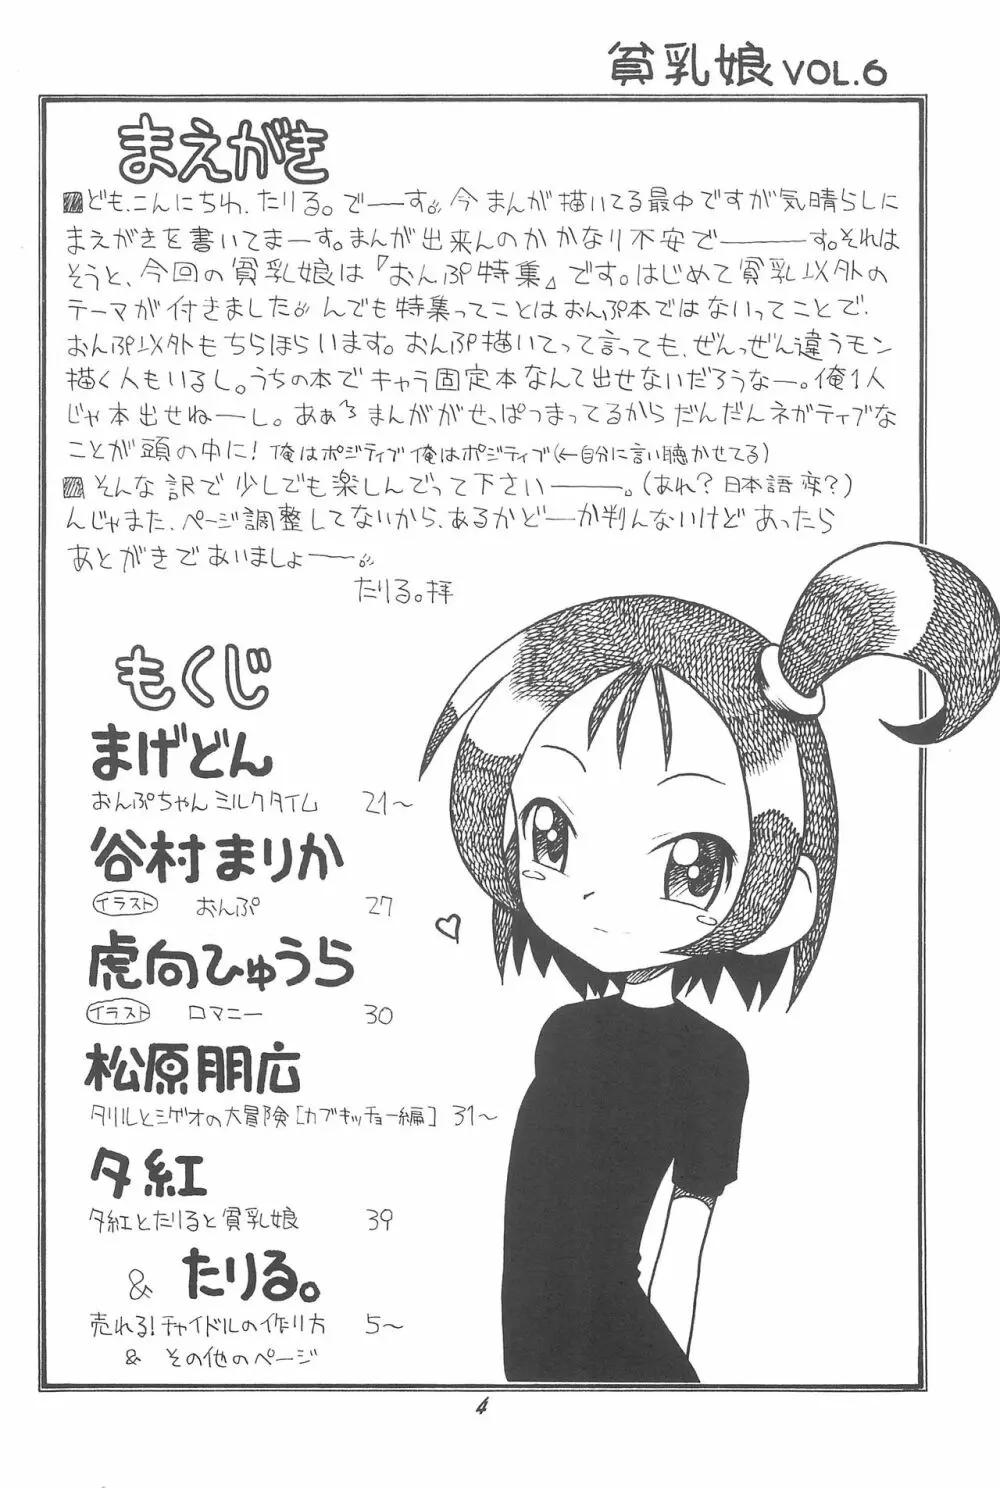 貧乳娘 VOL.6
まえがき
ども、こんにちわ、たりる。でーーす。今まんが描いてる最中ですが気晴らしに
まえがきを書いてまーす。まんが出来んのかかなり不安でーーーす。それは
そうと、今回の貧乳娘は『おんぷ特集』です。はじめて貧乳以外の
テーマが付きました。んでも特集ってことはおんぷ本ではないってことで、
おんぷ以外もちらほらいます。おんぷ描いてって言っても、ぜんっぜん違うモン
描く人もいるし。うちの本でキャラ固定本なんて出せないだろうなー。俺1人
じゃ本出せねーーし。あぁ〜まんががせっぱつまってるからだんだんネガティブな
ことが頭の中に!俺はポジティブ俺はポジティブ(←自分に言い聴かせてる)
そんな訳で少しでも楽しんでって下さいーーー。(あれ?日本語変?)
んじゃまた、ページ調整してないから、あるかどーか判んないけどあったら
あとがきであいましょーー。
たりる。拝
もくじ
まげどん
おんぷちゃんミルクタイム 21〜
谷村まりか
イラスト おんぷ 27
虎向ひゅうら
イラスト ロマニー 30
松原朋広
タリルとシゲオの大冒険[カブキッチョー編] 31〜
夕紅
夕紅とたりると貧乳娘 39
& たりる。
売れる!チャイドルの作り方 5〜
& その他のページ
4